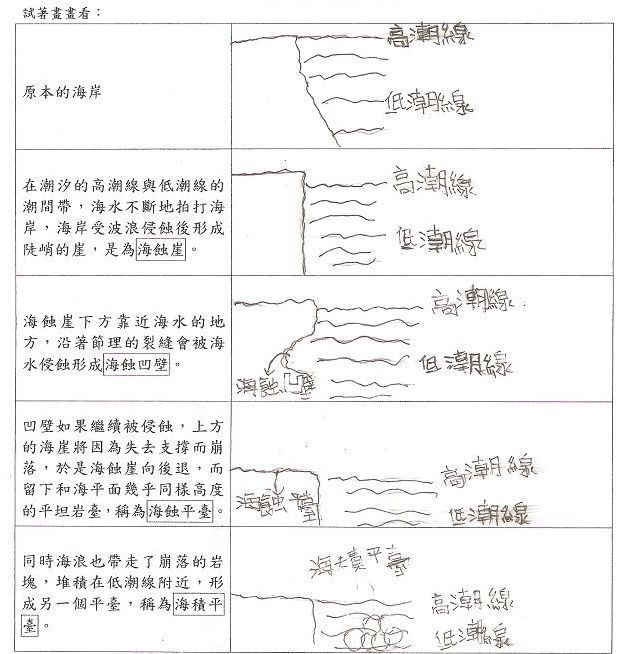 試著畫畫看：
原本的海岸
高潮線
低潮線
在潮汐的高潮線與低潮線的
潮間帶，海水不斷地拍打海
岸，海岸受波浪侵蝕後形成
陡峭的崖，是為海蝕崖。
高潮線
低潮線
海蝕崖下方靠近海水的地
方，沿著節理的裂縫會被海
水侵蝕形成海蝕凹壁。
高潮線
低潮線
海蝕凹壁
凹壁如果繼續被侵蝕，上方
的海崖將因為失去支撐而崩
落，於是海蝕崖向後退，而
留下和海平面幾乎同樣高度
的平坦岩臺，稱為海蝕平臺。
高潮線
海蝕平臺
低潮線
同時海浪也帶走了崩落的岩
塊，堆積在低潮線附近，形
成另一個平臺，稱為海積平
臺。
海積平臺
高潮線
低潮線